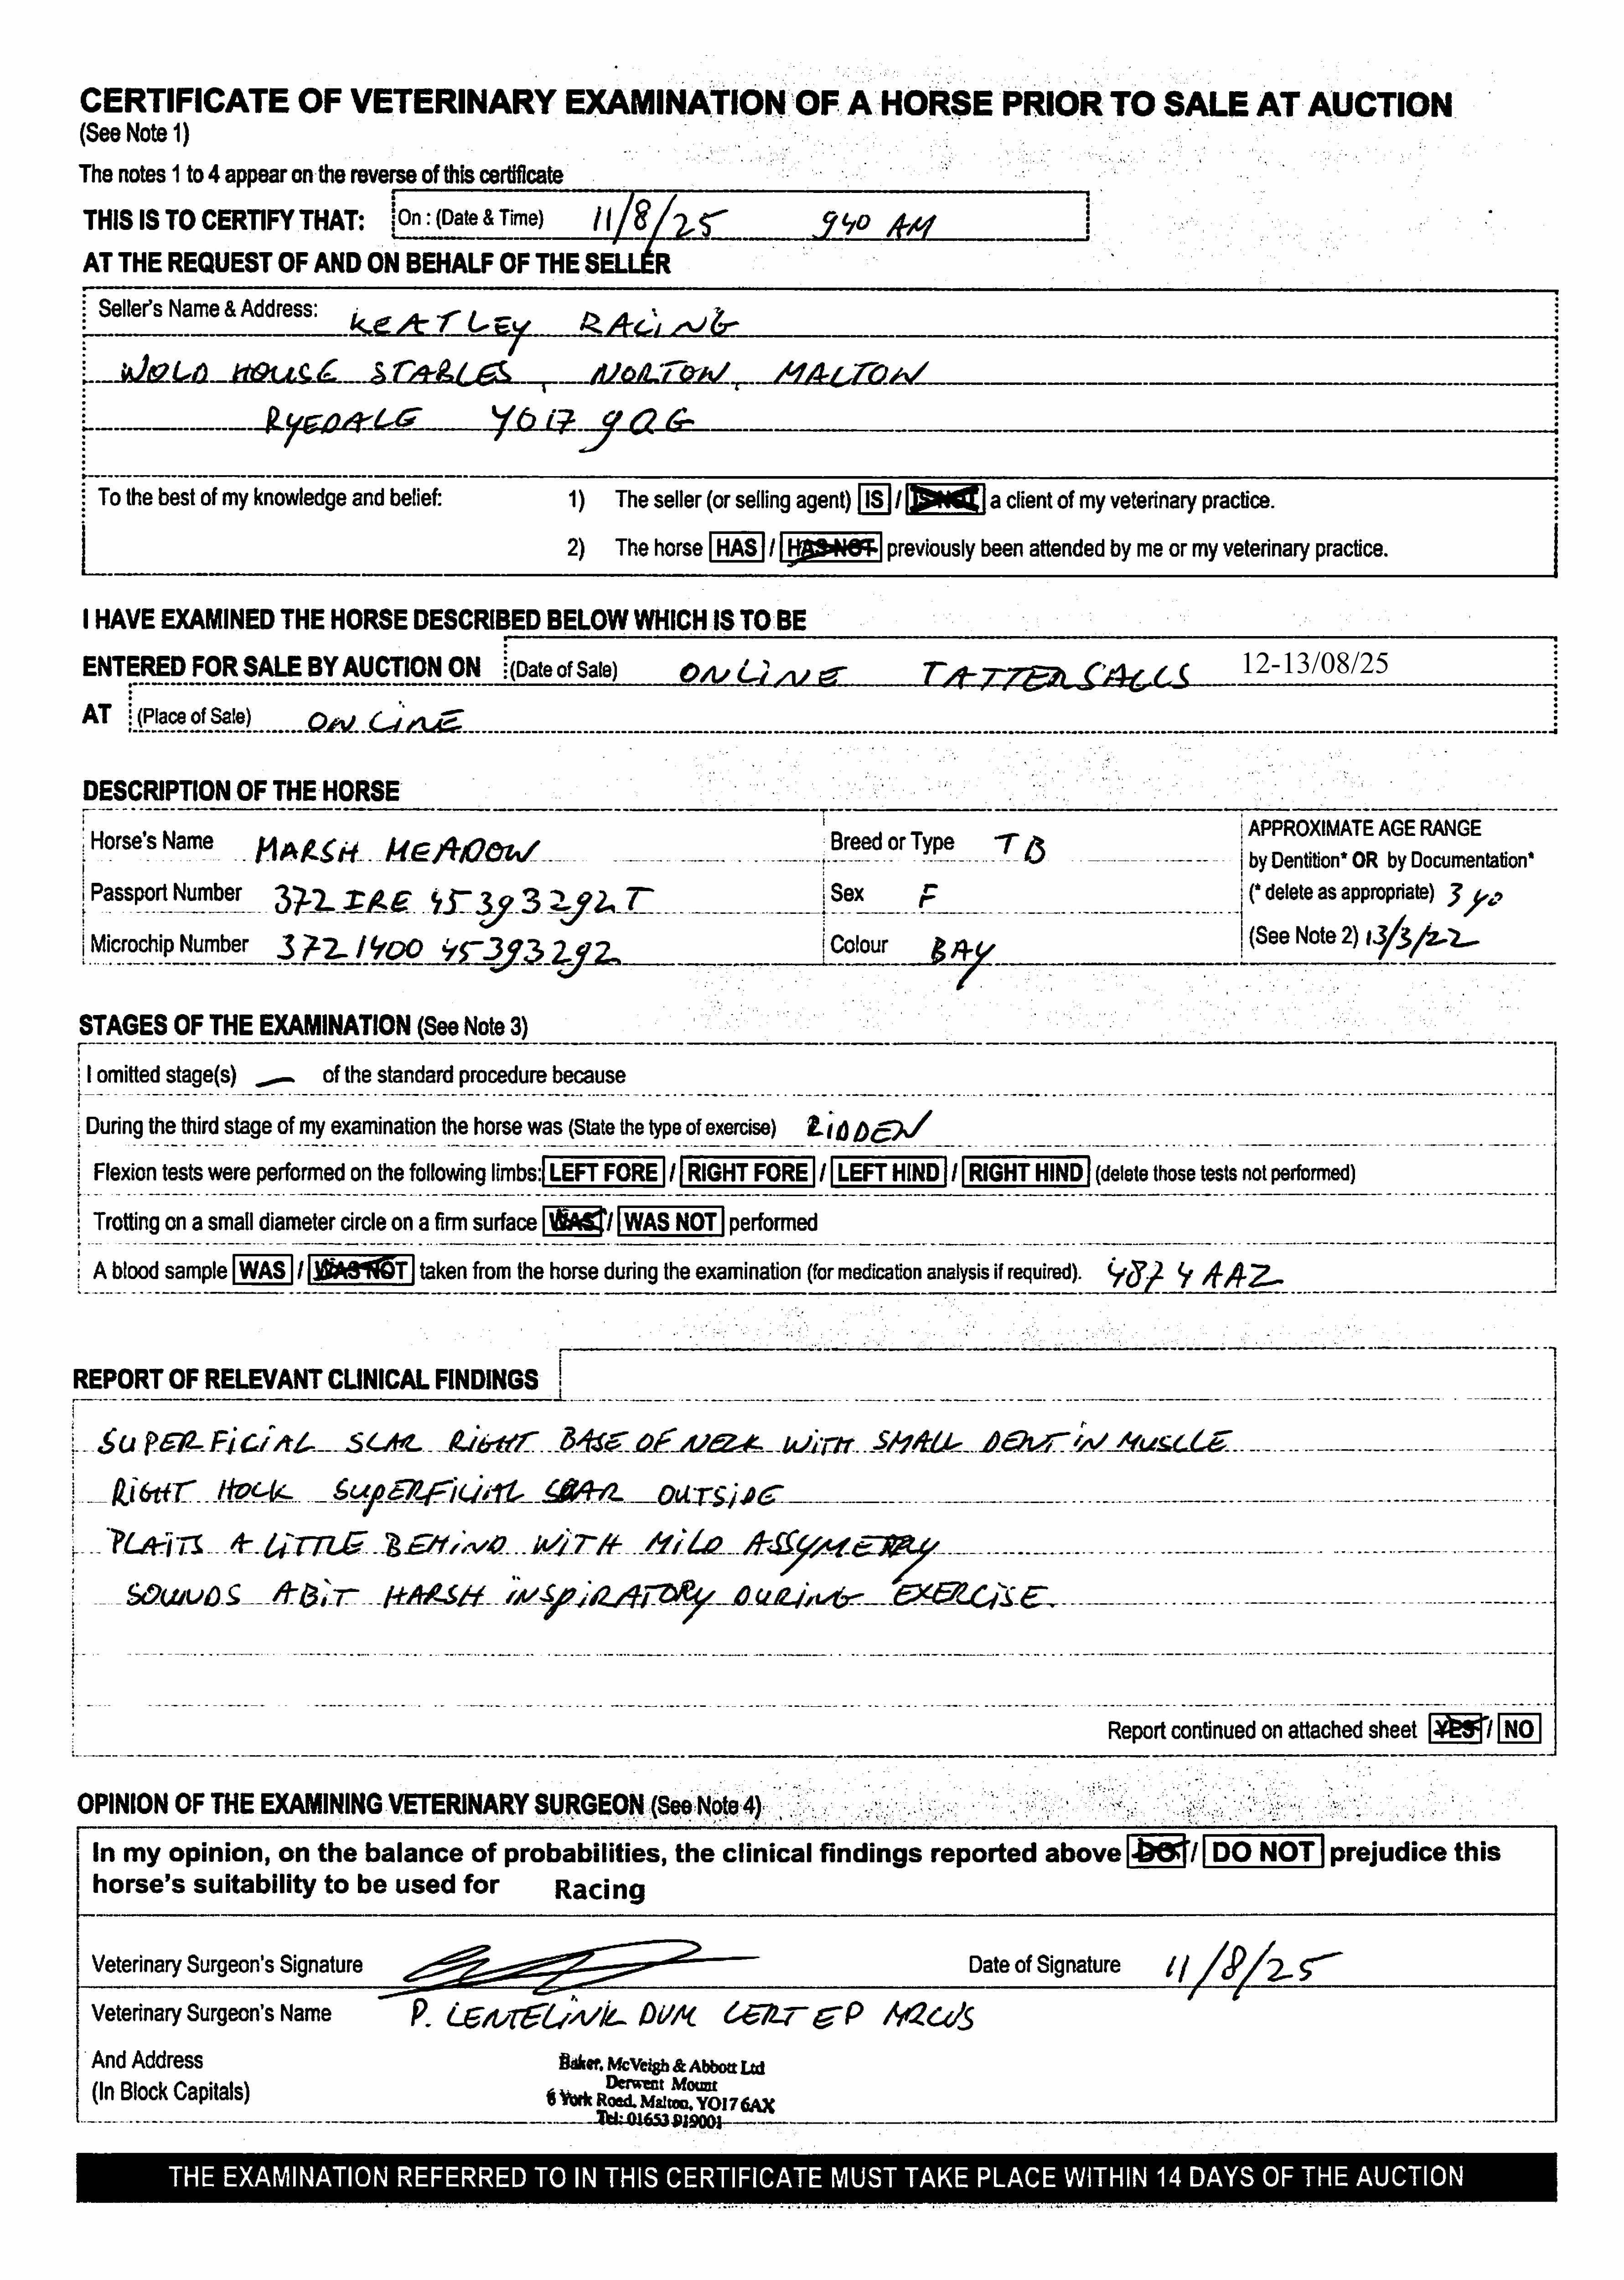 CERTIFICATE OF VETERINARY EXAMINATION OF A HORSE PRIOR TO SALE AT AUCTION
(See Note 1)
The notes 1 to 4 appear on the reverse of this certificate
THIS IS TO CERTIFY THAT: On : (Date & Time) 11/8/25 940 AM
AT THE REQUEST OF AND ON BEHALF OF THE SELLER
Seller's Name & Address: KEATLEY RACING
WOLD HOUSE STABLES, NORTON, MALTON
RYEDALE YO17 9QG
To the best of my knowledge and belief: 1) The seller (or selling agent) IS / IS NOT a client of my veterinary practice.
2) The horse HAS / HAS NOT previously been attended by me or my veterinary practice.
I HAVE EXAMINED THE HORSE DESCRIBED BELOW WHICH IS TO BE
ENTERED FOR SALE BY AUCTION ON (Date of Sale) ONLINE TATTERSALLS 12-13/08/25
AT (Place of Sale) ONLINE
DESCRIPTION OF THE HORSE
Horse's Name MARSH MEADOW Breed or Type TB APPROXIMATE AGE RANGE
by Dentition* OR by Documentation*
Passport Number 372 IRE 45393292T Sex F (* delete as appropriate) 3 yo
Microchip Number 3721400 45393292 Colour BAY (See Note 2) 13/3/22
STAGES OF THE EXAMINATION (See Note 3)
I omitted stage(s) — of the standard procedure because
During the third stage of my examination the horse was (State the type of exercise) RIDDEN
Flexion tests were performed on the following limbs: LEFT FORE / RIGHT FORE / LEFT HIND / RIGHT HIND (delete those tests not performed)
Trotting on a small diameter circle on a firm surface WAS / WAS NOT performed
A blood sample WAS / WAS NOT taken from the horse during the examination (for medication analysis if required). 4874AAZ
REPORT OF RELEVANT CLINICAL FINDINGS
SUPERFICIAL SCAR RIGHT BASE OF NECK WITH SMALL DENT IN MUSCLE
RIGHT HOCK SUPERFICIAL SCAR OUTSIDE
PLAITS A LITTLE BEHIND WITH MILD ASSYMETRY
SOUNDS A BIT HARSH INSPIRATORY DURING EXERCISE.
Report continued on attached sheet YES / NO
OPINION OF THE EXAMINING VETERINARY SURGEON (See Note 4)
In my opinion, on the balance of probabilities, the clinical findings reported above DO / DO NOT prejudice this
horse's suitability to be used for Racing
Veterinary Surgeon's Signature Date of Signature 11/8/25
Veterinary Surgeon's Name P. LENTELINK DVM CERT EP MRCVS
And Address
(In Block Capitals)
Baker, McVeigh & Abbott Ltd
Derwent Mount
6 York Road, Malton, YO17 6AX
Tel: 01653 919001
THE EXAMINATION REFERRED TO IN THIS CERTIFICATE MUST TAKE PLACE WITHIN 14 DAYS OF THE AUCTION